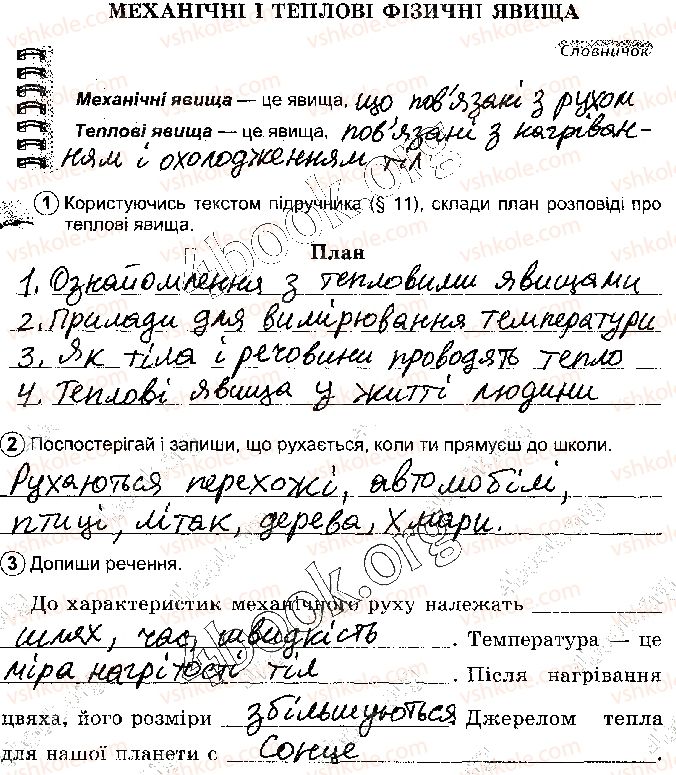 МЕХАНІЧНІ І ТЕПЛОВІ ФІЗИЧНІ ЯВИЩА
Словничок
Механічні явища — це явища, що пов'язані з рухом
Теплові явища — це явища, пов'язані з нагріван-
ням і охолодженням тіл
1 Користуючись текстом підручника (§ 11), склади план розповіді про
теплові явища.
План
1. Ознайомлення з тепловими явищами
2. Прилади для вимірювання температури
3. Як тіла і речовини проводять тепло
4. Теплові явища у житті людини
2 Поспостерігай і запиши, що рухається, коли ти прямуєш до школи.
Рухаються перехожі, автомобілі,
птиці, літак, дерева, хмари.
3 Допиши речення.
До характеристик механічного руху належать
шлях, час, швидкість. Температура — це
міра нагрітості тіл. Після нагрівання
цвяха, його розміри збільшуються. Джерелом тепла
для нашої планети є Сонце.
4book.org
vshkole.com